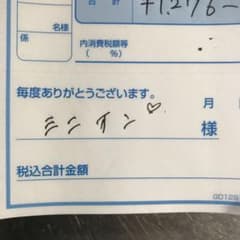 合計 ¥1,276-
名様
係
内消費税額等
(  %)
毎度ありがとうございます。
月
ミニオン♡ 様
税込合計金額
GD12S